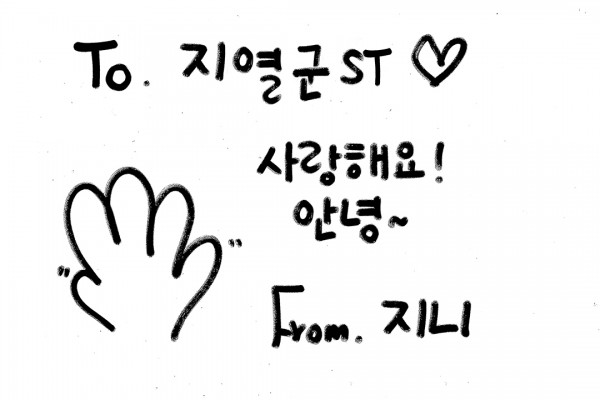 To. 지열군 ST ♡
사랑해요!
안녕~
From. 지니